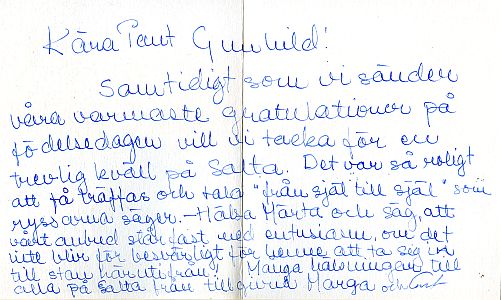 Kära Tant Gunhild!
Samtidigt som vi sänder
våra varmaste gratulationer på
födelsedagen vill vi tacka för en
trevlig kväll på Salta. Det var så roligt
att få träffas och tala "från själ till själ" som
ryssarna säger. – Hälsa Märta och säg, att
vårt anbud står fast med entusiasm, om det
inte blir för besvärligt för henne att ta sig in
till stan härutifrån. Många hälsningar till
alla på Salta från tillgivna Marga och